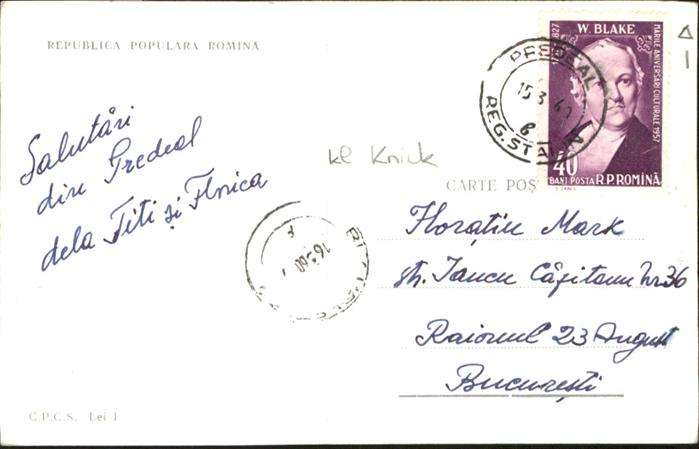 REPUBLICA POPULARA ROMINA
W. BLAKE
1827
MARILE ANIVERSARI CULTURALE 1957
40
BANI POSTA R.P.ROMÎNA
PREDEAL
15 3 60
REG. STALIN
Salutări
din Predeal
dela Titi și Florica
kl Knick
CARTE POȘ
16 60
Florațiu Mark
str. Iancu Căpitanu Nr 36
Raionul 23 August
București
C.P.C.S. Lei 1